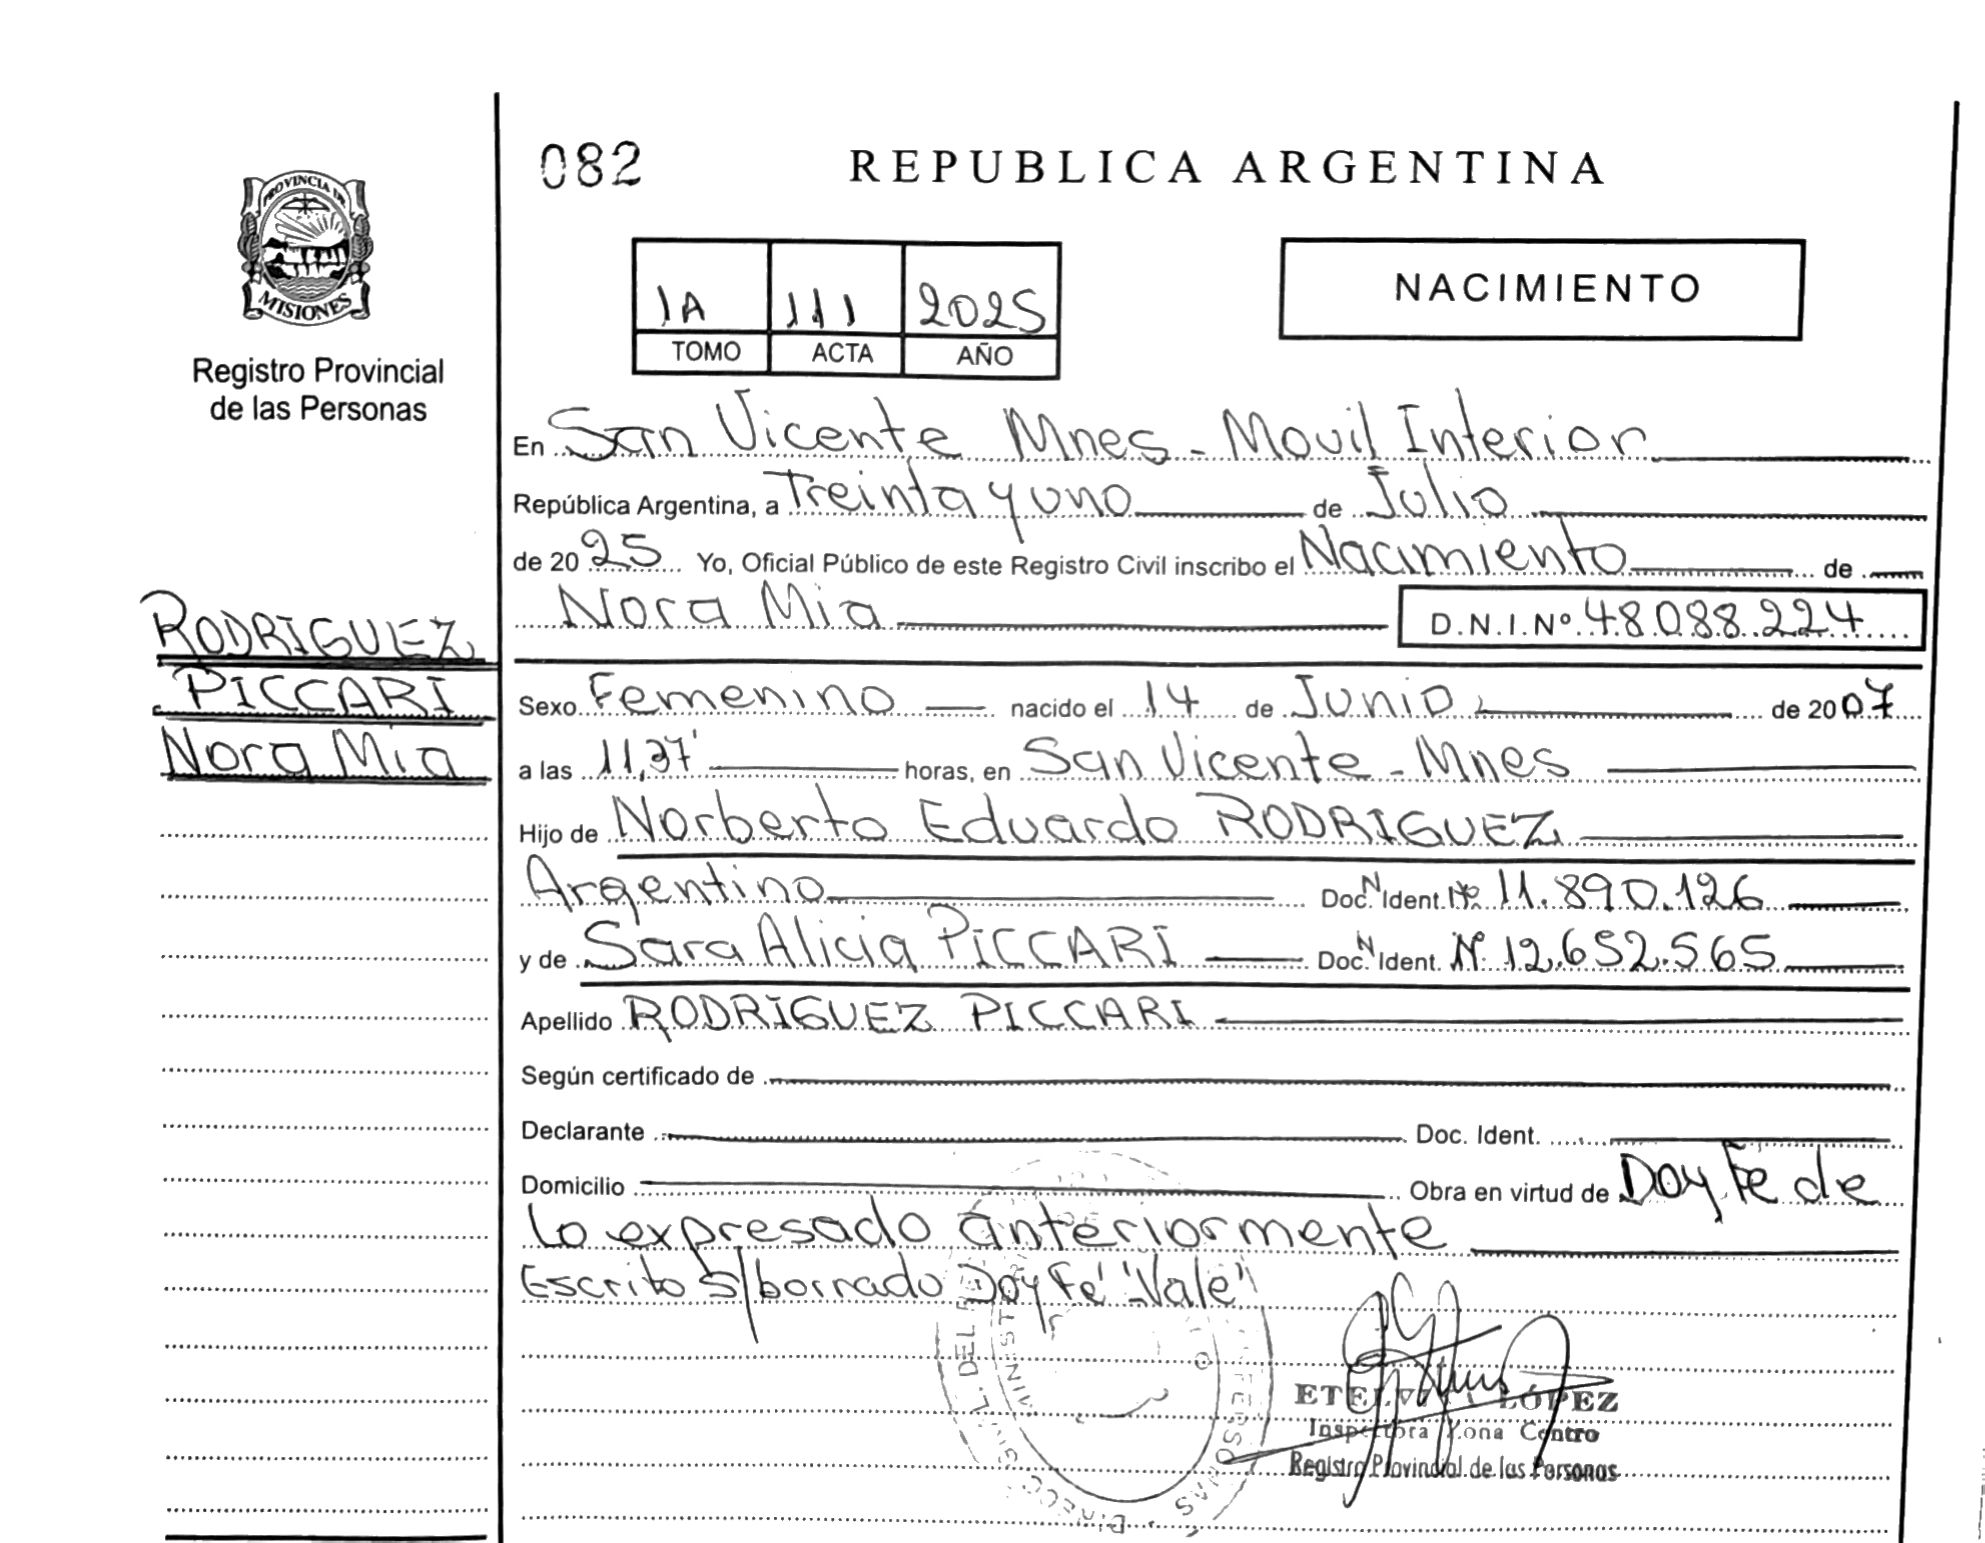 082
REPUBLICA ARGENTINA
PROVINCIA DE
MISIONES
Registro Provincial
de las Personas
1A 111 2025
TOMO ACTA AÑO
NACIMIENTO
En San Vicente Mnes - Movil Interior
República Argentina, a Treinta y uno de Julio
de 2025 Yo, Oficial Público de este Registro Civil inscribo el Nacimiento de
Nora Mia D.N.I.Nº 48.088.224
RODRIGUEZ
PICCARI
Nora Mia
Sexo Femenino nacido el 14 de Junio de 2007
a las 11,37' horas, en San Vicente - Mnes
Hijo de Norberto Eduardo RODRIGUEZ
Argentino Doc. N. Ident. Nº 11.890.126
y de Sara Alicia PICCARI Doc. N. Ident. Nº 12.652.565
Apellido RODRIGUEZ PICCARI
Según certificado de
Declarante Doc. Ident.
Domicilio Obra en virtud de Doy Fe de
lo expresado anteriormente
Escrito s/borrado Doy Fe "Vale"
LÓPEZ
Inspectora Zona Centro
Registro Provincial de las Personas